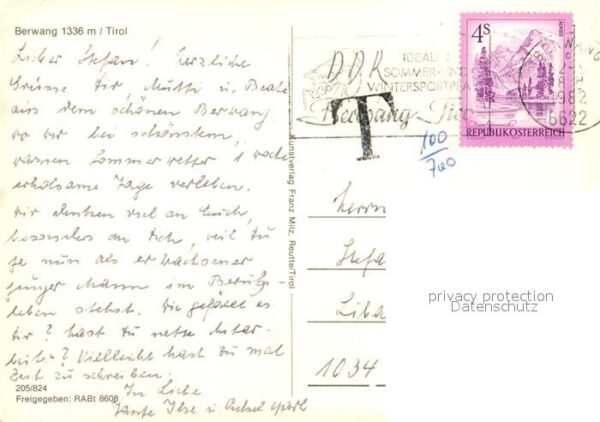 Berwang 1336 m / Tirol
Lieber Stefan! Herzliche
Grüsse Dir, Mutti u. Beate
aus dem schönen Berwang
wo wir bei schönstem,
warmen Sommerwetter 1 Woche
erholsame Tage verleben.
Wir denken viel an Euch,
besonders an Dich, weil Du
ja nun als erwachsener
junger Mann im Berufs-
leben stehst. Wie gefällt es
Dir? Hast Du nette Mitar-
beiter? Vielleicht hast Du mal
Zeit zu schreiben.
In Liebe
Tante Ilse u.
205/824
Freigegeben: RABt 8608
Kunstverlag Franz Milz, Reutte/Tirol
DDR
IDEALER
SOMMER- UND
WINTERSPORTPLATZ
Berwang Tirol
T
100
700
4S
REPUBLIK ÖSTERREICH
BERWANG
1982
6622
Herrn
Stefa
1034
privacy protection
Datenschutz